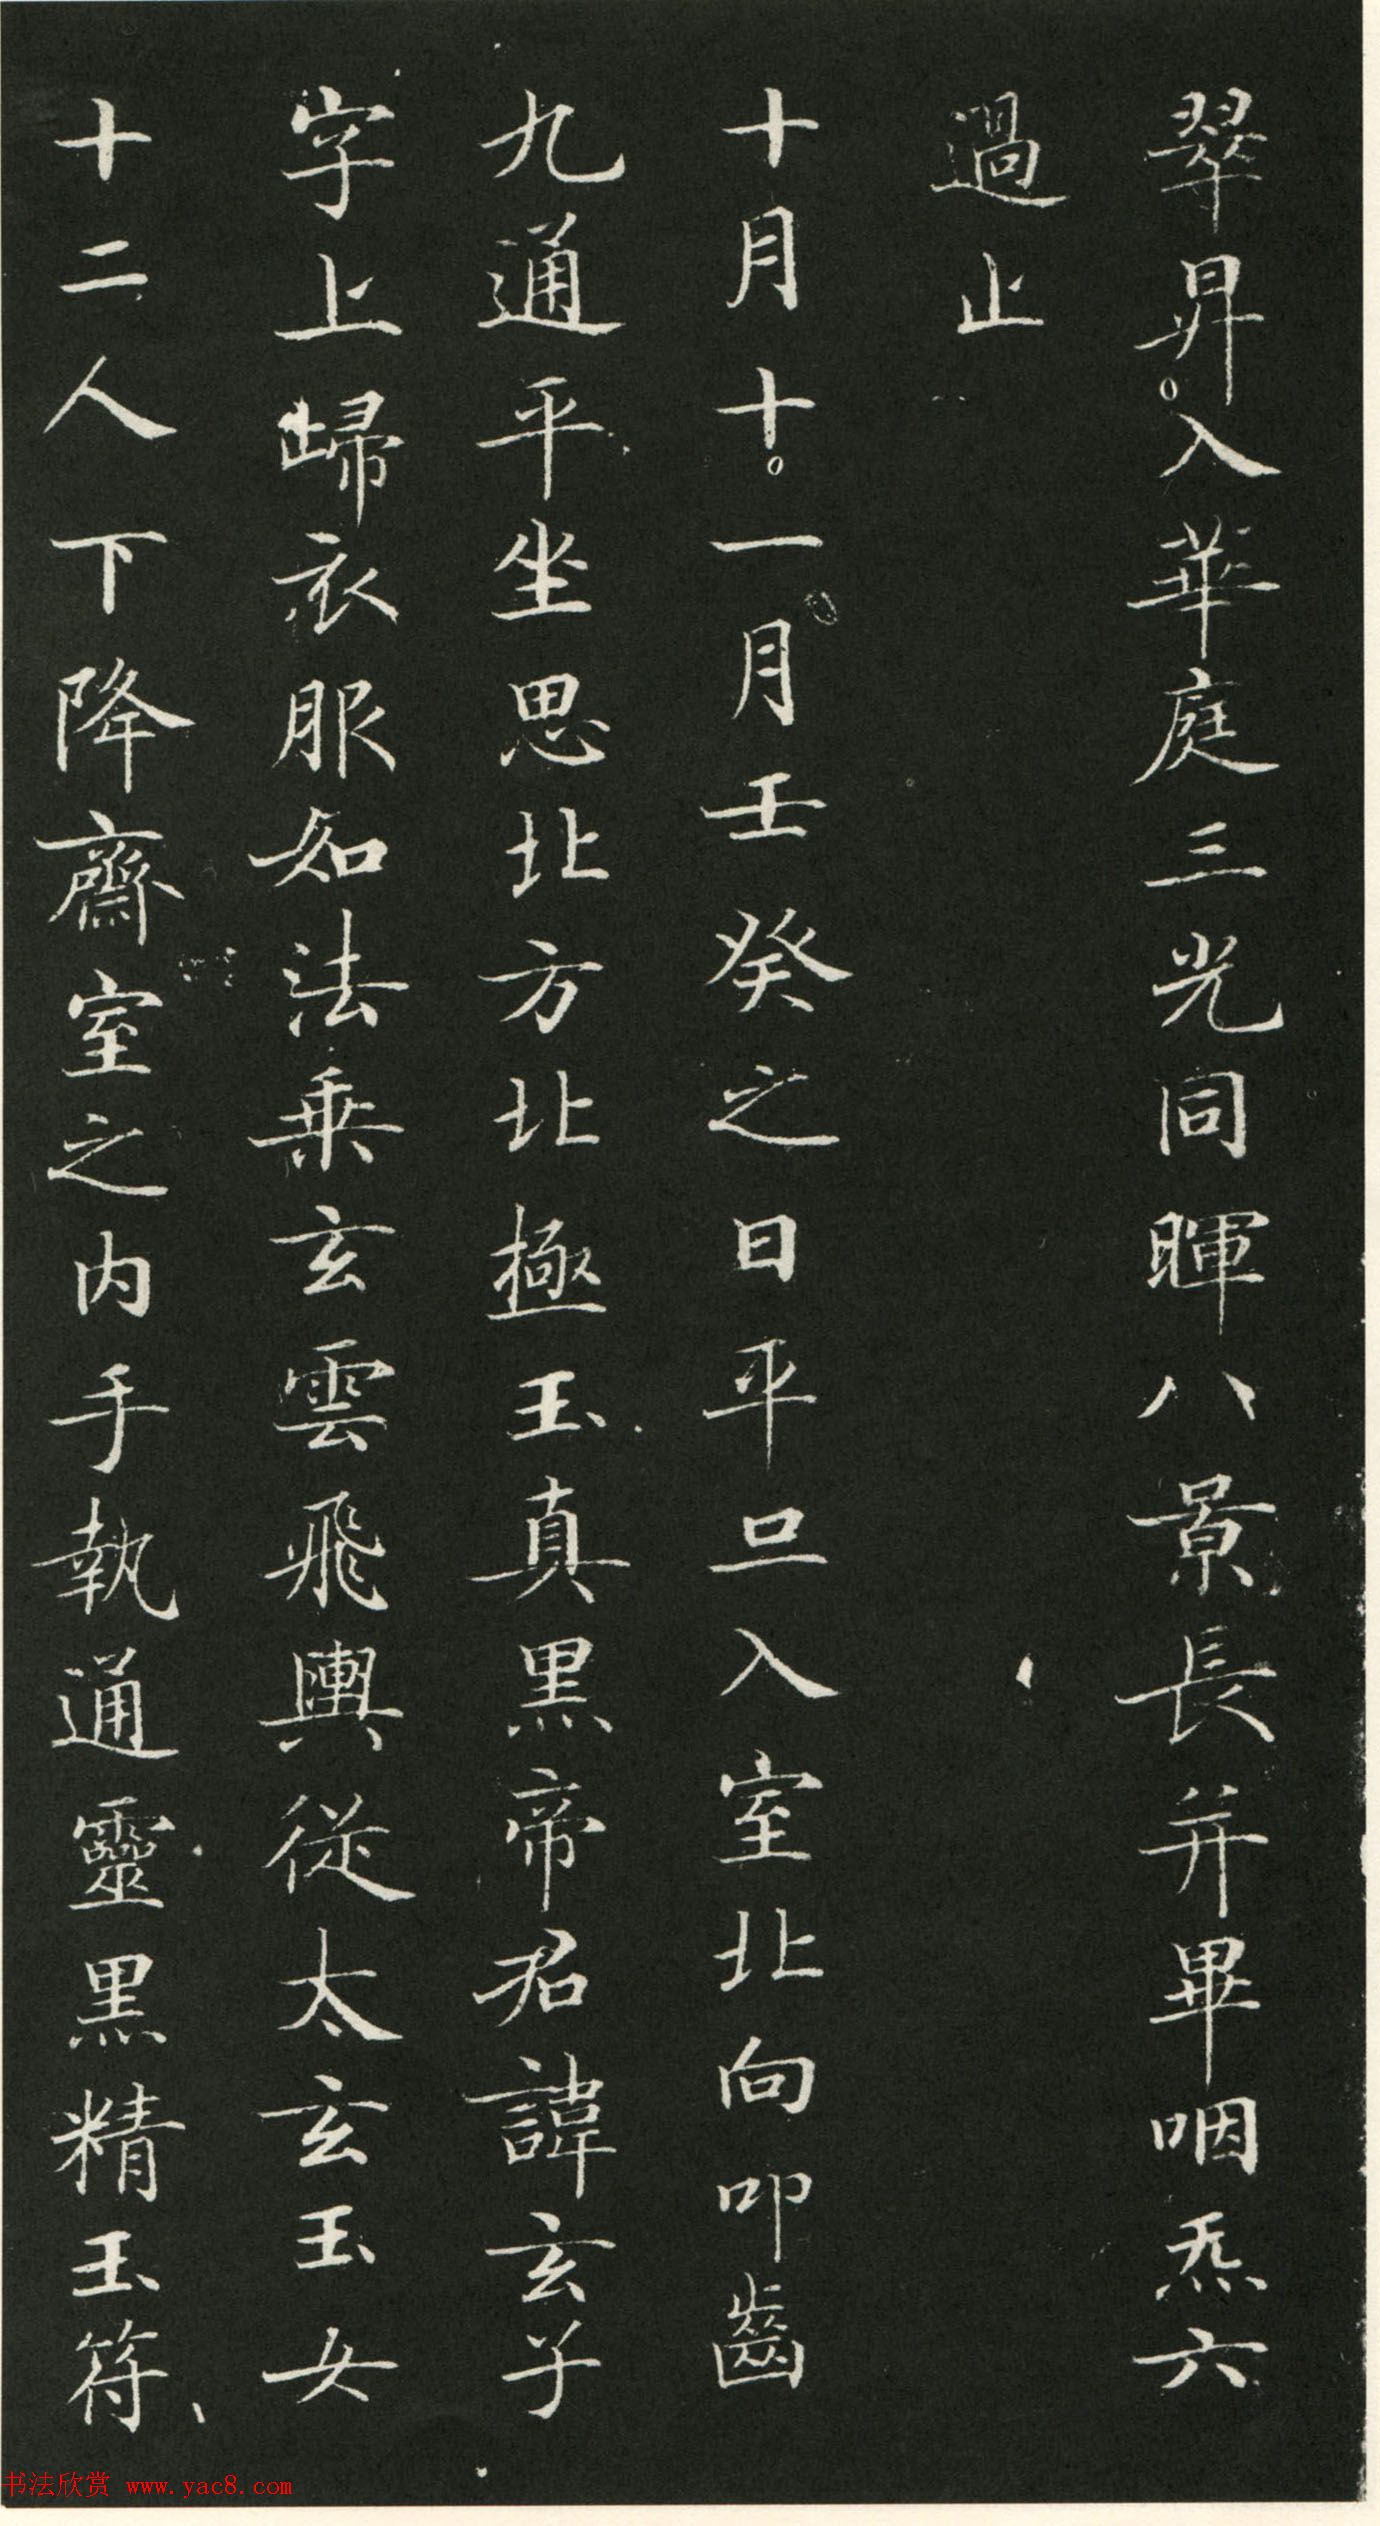 翠昇入華庭三光同暉八景長并畢咽炁六
過止
十月十一月壬癸之日平旦入室北向叩齒
九通平坐思北方北極玉真黑帝君諱玄子
字上歸衣服如法乗玄雲飛輿從太玄玉女
十二人下降齋室之内手執通靈黑精玉符
书法欣赏 www.yac8.com